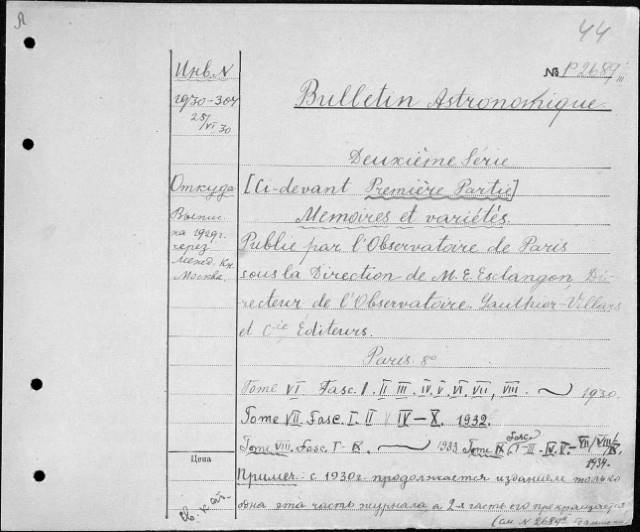 44
№ P2689/III
Инв. N
1930-304
28/VI 30
Bulletin Astronomique
Deuxième Série
Откуда
[Ci-devant Première Partie]
Выпис-
ка 1929 г.
через
Межд. Кн.
Москва.
Memoires et variétés
Publie par l'Observatoire de Paris
sous la Direction de M. E. Esclangon, Di-
recteur de l'Observatoire. Gauthier-Villars
et Cie, Editeurs.
Paris. 8°
Tome VI Fasc. I. II III. IV. V. VI. VII, VIII. 1930.
Tome VII. Fasc. I. II IV—X. 1932.
Tome VIII. Fasc. I-IX. 1933 Tome IX Fasc. I-III-IV. V.- VII/VIII/IX.
1934.
Цена
Примеч. с 1930 г. продолжается изданием только
одна эта часть журнала а 2-я часть его прекращается
(см. N 2689